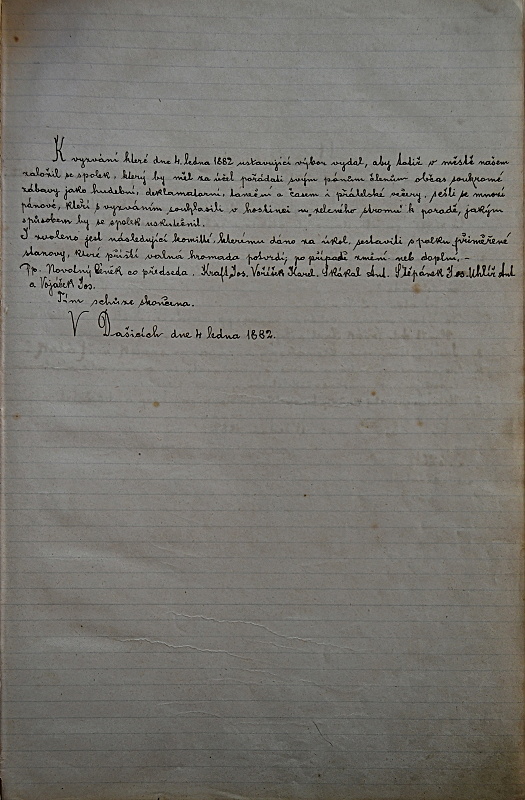 K vyzvání které dne 4. ledna 1882 ustavující výbor vydal, aby totiž v městě našem
založil se spolek, který by měl za účel pořádati svým pánům členům občas soukromé
zábavy jako hudební, deklamatorní, taneční a časem i přátelské večery, sešli se mnozí
pánové, kteří s vyzváním souhlasili v hostinci u zeleného stromu k poradě, jakým
způsobem by se spolek uskutečnil.
I zvoleno jest následující komitté, kterému dáno za úkol, sestaviti spolku přiměřené
stanovy, které příští valná hromada potvrdí, po případě změní neb doplní. –
Pp. Novotný Čeněk co předseda, Kraft Jos. Vožíšek Karel. Skákal Ant. Štěpánek Jos. Uhlíř Ant
a Vojáček Jos.
Tím schůze skončena.
V Dašicích dne 4 ledna 1882.